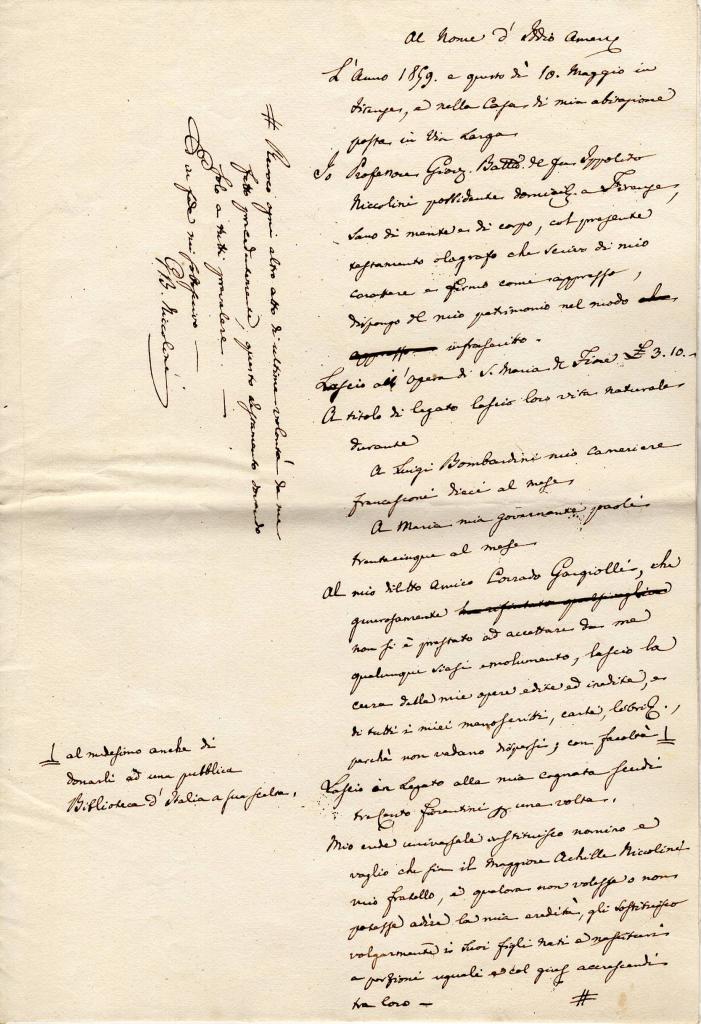 Al Nome d'Iddio Amen
L'Anno 1859. e questo dì 10. Maggio in
Firenze, e nella Casa di mia abitazione
posta in Via Larga
Io Professore Giov. Batta. del fu Ippolito
Niccolini possidente domicil. a Firenze,
sano di mente e di corpo, col presente
testamento olografo che scrivo di mio
carattere e firmo come appresso,
dispongo del mio patrimonio nel modo che
appresso infrascritto.
Lascio all'Opera di S. Maria del Fiore £ 3.10.-
A titolo di legato lascio loro vita naturale
durante
A Luigi Bombardini mio cameriere
francesconi dieci al mese
A Maria mia governante paoli
trentacinque al mese
Al mio diletto Amico Corrado Gargiolli, che
generosamente ha rifiutato qualsivoglia
non si è prestato ad accettare da me
qualunque siasi emolumento, lascio la
cura delle mie opere edite ed inedite, e
di tutti i miei manoscritti, carte, libri,
perchè non vadano dispersi; con facoltà
Lascio in Legato alla mia cognata scudi
trecento fiorentini p una volta.
Mio erede universale instituisco nomino e
voglio che sia il Maggiore Achille Niccolini
mio fratello, e qualora non volesse o non
potesse adire la mia eredità, gli sostituisco
volgarmente i suoi figli nati e nascituri
a porzioni uguali e col gius accrescendi
tra loro –
#
# Revoco ogni altro atto di ultima volontà da me
fatto precedentemente questo testamento dovendo
solo a tutti prevalere. —
E in fede mi sottoscrivo —
GB. Niccolini
al medesimo anche di
donarli ad una pubblica
Biblioteca d'Italia a sua scelta.